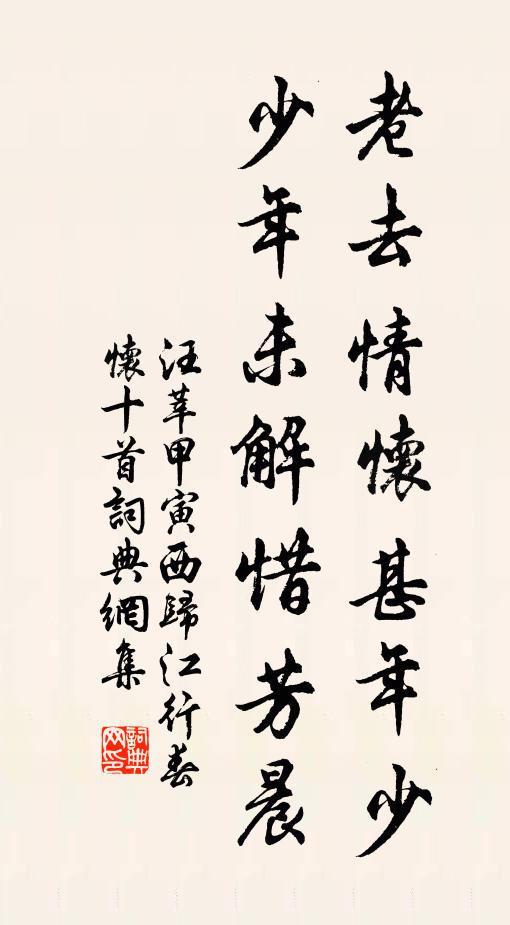 老去情懷甚年少
少年未解惜芳晨
汪莘甲寅西歸江行春
懷十首詞典網集
詞典
網印